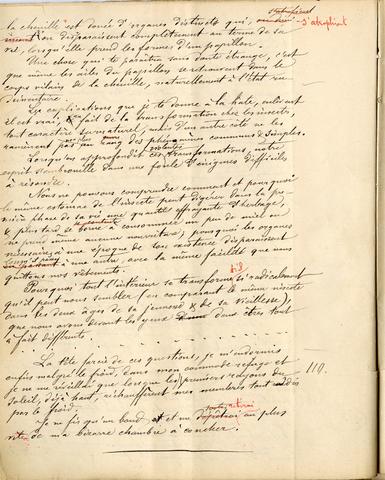 la chenille est douée d'organes distincts qui, s'atrophient
et disparaissent complètement au terme de sa
vie, lorsqu'elle prend les formes d'un papillon.
Une chose qui te paraîtra sans doute étrange, c'est
que même les ailes du papillon se retrouvent dans le
corps vilain de la chenille, naturellement à l'état ru-
dimentaire.
Les explications que je te donne à la hâte, enlèvent
il est vrai, au fait de la transformation chez les insectes,
tout caractère surnaturel, mais d'un autre côté ne les
ramènent pas au rang des phénomènes communs & simples.
Lorsqu'on approfondit ces transformations, notre
esprit s'embrouille dans une foule d'énigmes difficiles
à résoudre.
Nous ne pouvons comprendre comment et pourquoi
le même estomac de l'insecte peut digérer dans la pre-
mière phase de sa vie une quantité effrayante d'herbage,
& plus tard se borne à consommer un peu de miel ou
ne prend même aucune nourriture), pourquoi les organes
nécessaires à une époque de son existence disparaissent
à une autre, avec la même facilité que nous
quittons nos vêtements.
Pourquoi tout l'intérieur se transforme si radicalement
qu'il peut nous sembler (en comparant le même insecte
dans les deux âges de sa jeunesse & de sa vieillesse),
que nous avons devant les yeux deux êtres tout
à fait différents.
La tête farcie de ces questions, je m'endormis
enfin malgré le froid, dans mon commode refuge et
je ne me réveillai que lorsque les premiers rayons du
soleil, déjà haut, réchauffèrent mes membres tout raidis
par le froid.
110.
Je ne fis qu'un bond et me au plus
vite de ma bizarre chambre à coucher.